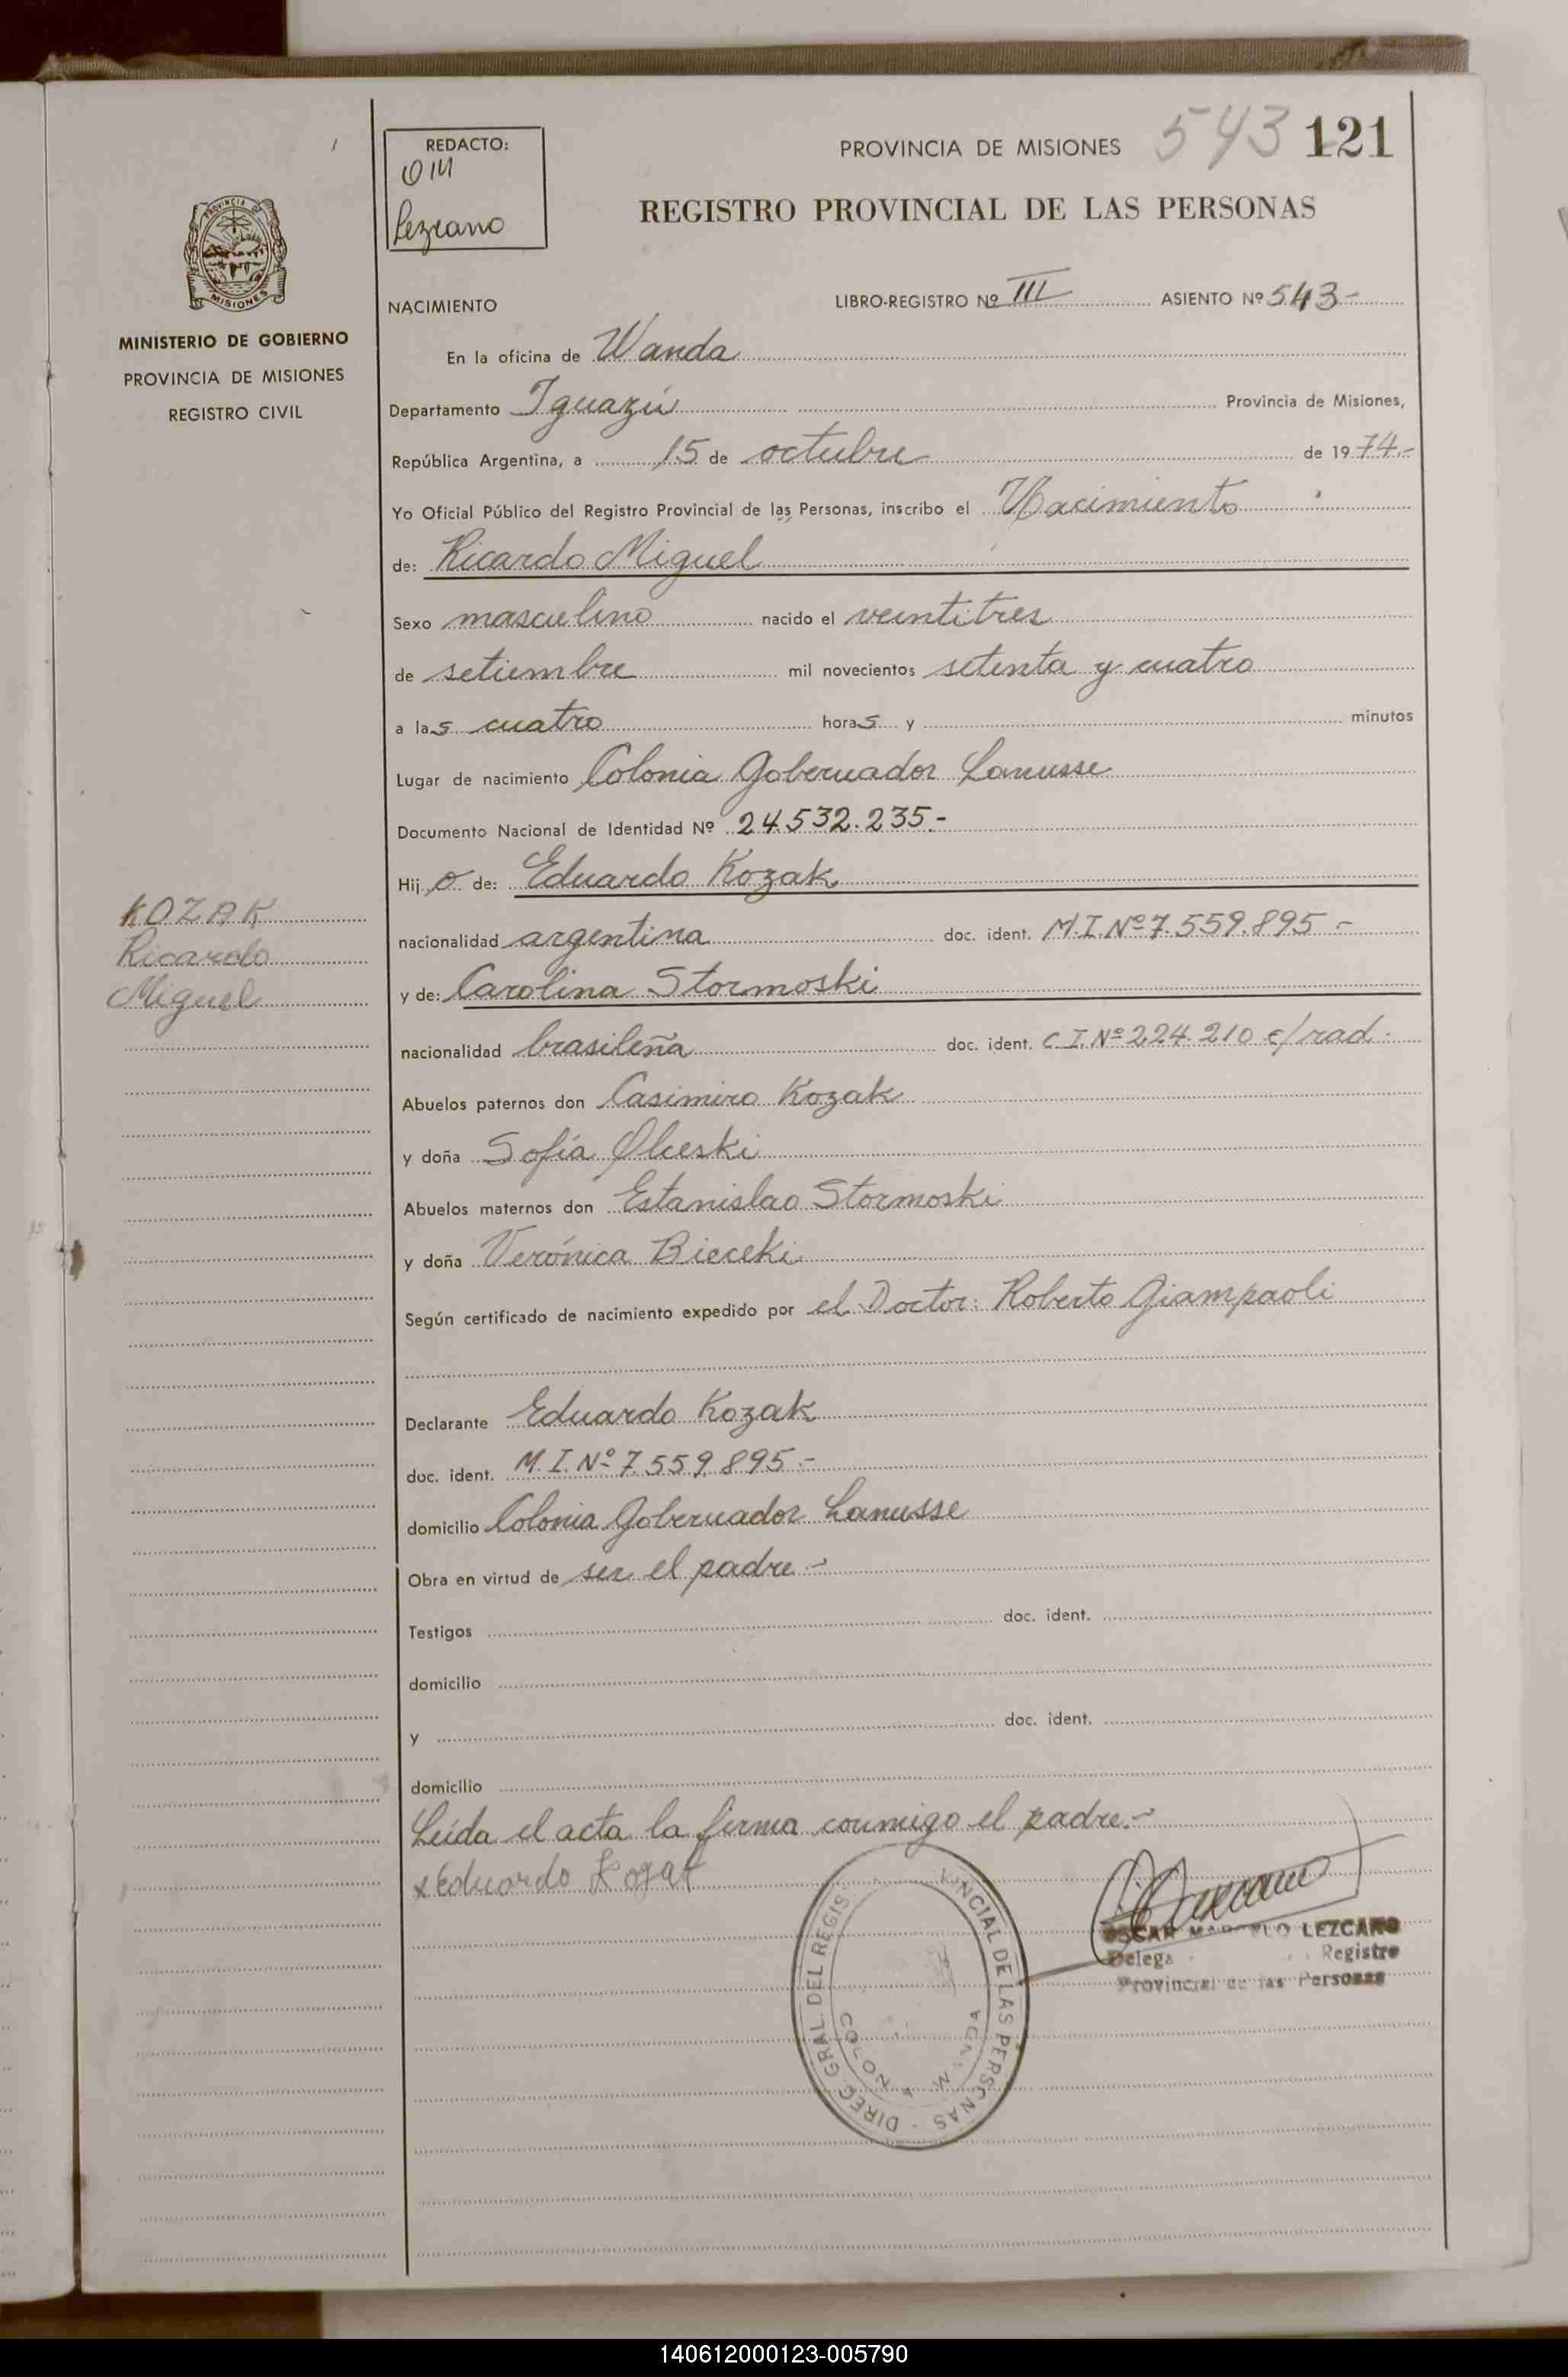 543 121
REDACTO:
OM
Lezcano
PROVINCIA DE MISIONES
REGISTRO PROVINCIAL DE LAS PERSONAS
PROVINCIA DE
MISIONES
MINISTERIO DE GOBIERNO
PROVINCIA DE MISIONES
REGISTRO CIVIL
NACIMIENTO LIBRO-REGISTRO Nº III ASIENTO Nº 543-
En la oficina de Wanda
Departamento Iguazú Provincia de Misiones,
República Argentina, a 15 de octubre de 1974.-
Yo Oficial Público del Registro Provincial de las Personas, inscribo el Nacimiento
de: Ricardo Miguel
Sexo masculino nacido el veintitres
de setiembre mil novecientos setenta y cuatro
a las cuatro horas y minutos
Lugar de nacimiento Colonia Gobernador Lanusse
Documento Nacional de Identidad Nº 24.532.235.-
Hijo de: Eduardo Kozak
nacionalidad argentina doc. ident. M.I.Nº 7.559.895.-
y de: Carolina Stormoski
nacionalidad brasileña doc. ident. C.I.Nº 224.210 c/rad.
Abuelos paternos don Casimiro Kozak
y doña Sofía Olceski
Abuelos maternos don Estanislao Stormoski
y doña Verónica Bieceki
Según certificado de nacimiento expedido por el Doctor: Roberto Giampaoli
Declarante Eduardo Kozak
doc. ident. M.I.Nº 7.559.895.-
domicilio Colonia Gobernador Lanusse
Obra en virtud de ser el padre.-
Testigos doc. ident.
domicilio
y doc. ident.
domicilio
Leída el acta la firma conmigo el padre.-
x Eduardo Kozak
KOZAK
Ricardo
Miguel
DIREC. GRAL. DEL REGIS VINCIAL DE LAS PERSONAS
OSCAR MARCELO LEZCANO
Delega Registro
Provincial de las Personas
140612000123-005790